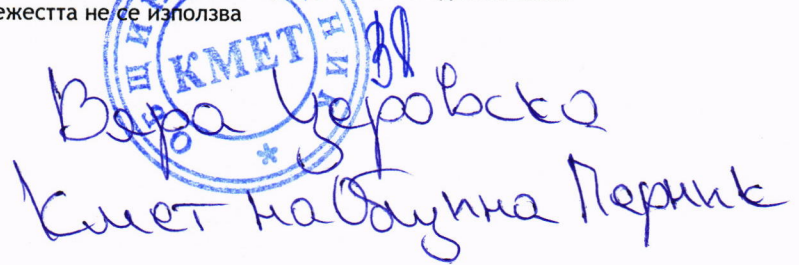 ежестта не се използва
КМЕТ
Вяра Церовска
Кмет на Община Перник